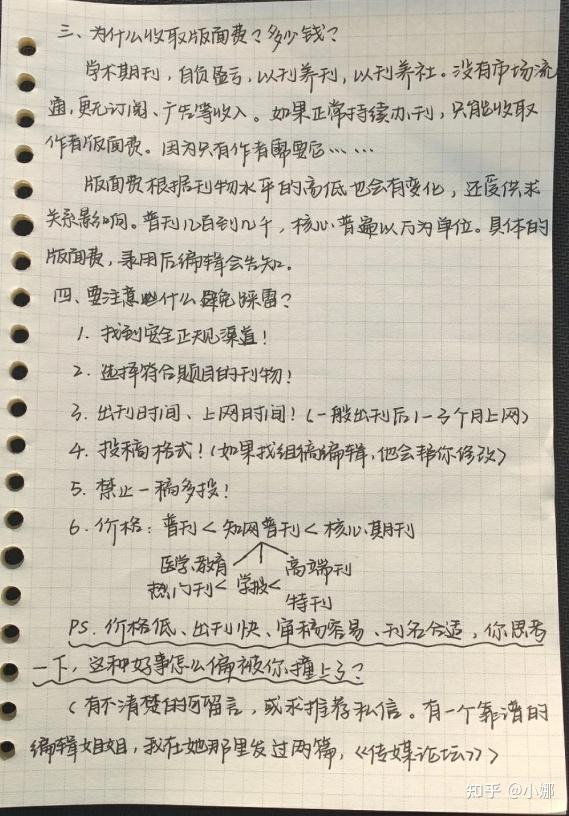 三、为什么收取版面费？多少钱？
学术期刊，自负盈亏，以刊养刊，以刊养社。没有市场流
通，更无订阅、广告等收入。如果正常持续办刊，只能收取
作者版面费。因为只有作者需要它……
版面费根据刊物水平的高低也会有变化，还受供求
关系影响。普刊几百到几千，核心普遍以万为单位。具体的
版面费，录用后编辑会告知。
四、要注意些什么避免踩雷？
1. 找到安全正规渠道！
2. 选择符合题目的刊物！
3. 出刊时间、上网时间！(一般出刊后1-3个月上网)
4. 投稿格式！(如果找组稿编辑，他会帮你修改)
5. 禁止一稿多投！
6. 价格：普刊<知网普刊<核心期刊
医学、教育 高端刊
热门刊< 学报<
特刊
PS. 价格低、出刊快、审稿容易、刊名合适，你思考
一下，这种好事怎么偏被你撞上了？
(有不清楚的可留言，或求推荐私信。有一个靠谱的
编辑姐姐，我在她那里发过两篇，《传媒论坛》)
知乎 @小娜